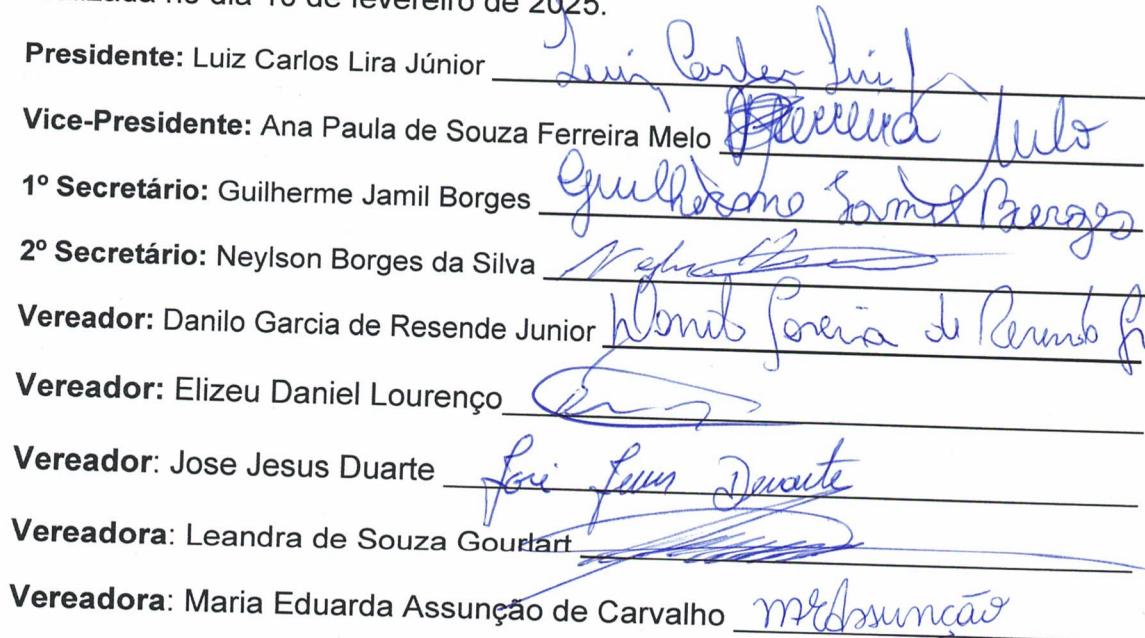 de fevereiro de 2025.
Presidente: Luiz Carlos Lira Júnior Luiz Carlos
Vice-Presidente: Ana Paula de Souza Ferreira Melo Ferreira Melo
1º Secretário: Guilherme Jamil Borges Guilherme Jamil Borges
2º Secretário: Neylson Borges da Silva
Vereador: Danilo Garcia de Resende Junior Danilo Garcia de Resende Jr
Vereador: Elizeu Daniel Lourenço
Vereador: Jose Jesus Duarte José Jesus Duarte
Vereadora: Leandra de Souza Gourlart
Vereadora: Maria Eduarda Assunção de Carvalho MEAssunção